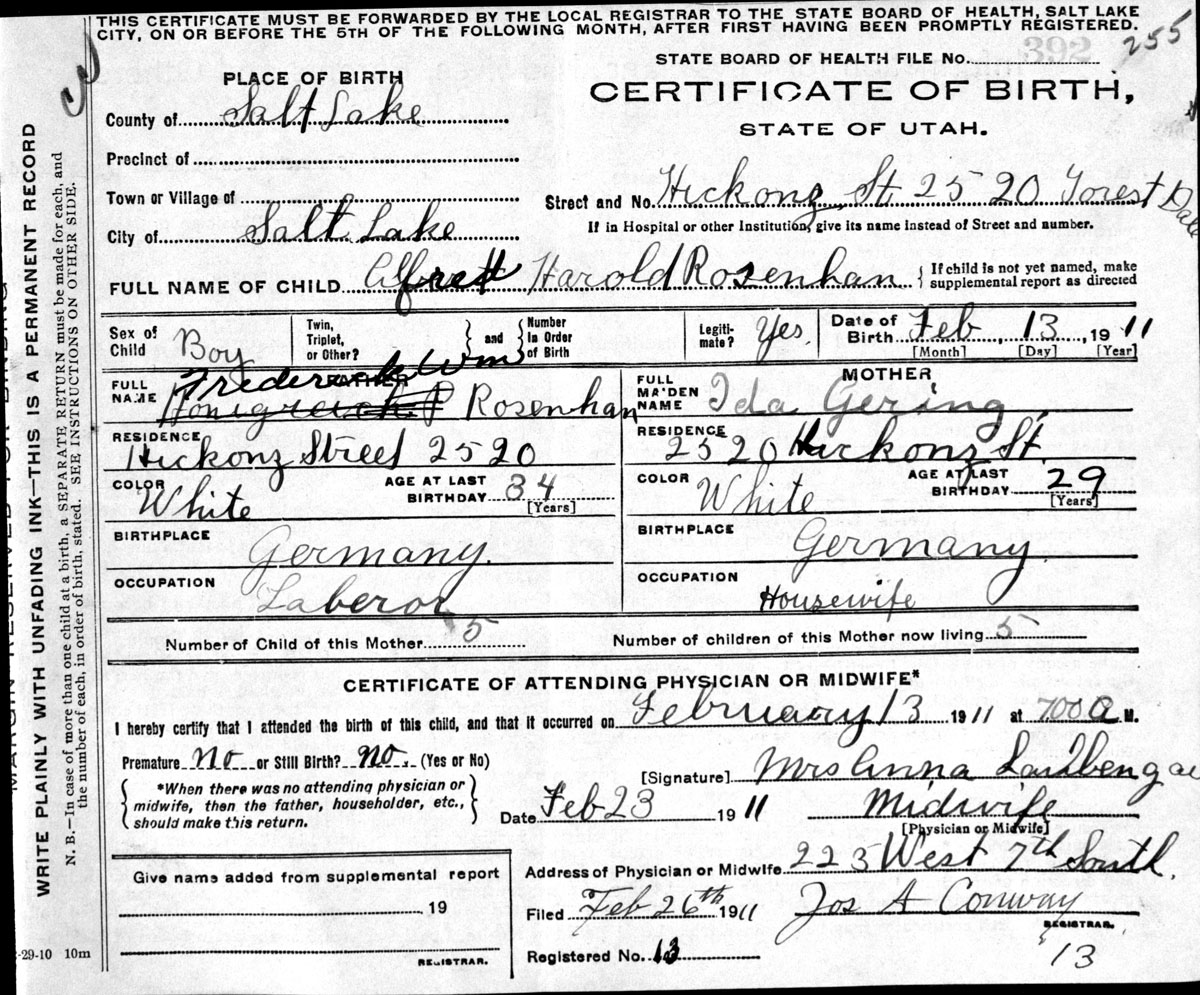 THIS CERTIFICATE MUST BE FORWARDED BY THE LOCAL REGISTRAR TO THE STATE BOARD OF HEALTH, SALT LAKE
CITY, ON OR BEFORE THE 5TH OF THE FOLLOWING MONTH, AFTER FIRST HAVING BEEN PROMPTLY REGISTERED.
255
392
STATE BOARD OF HEALTH FILE No.
PLACE OF BIRTH
CERTIFICATE OF BIRTH,
STATE OF UTAH.
County of Salt Lake
Precinct of
Town or Village of
Street and No. Hickonz St 2520 Forest Dale
City of Salt Lake
If in Hospital or other Institution, give its name instead of Street and number.
FULL NAME OF CHILD Alfred Harold Rosenhan { If child is not yet named, make
supplemental report as directed
Sex of Child Boy
Twin, Triplet, or Other?
and
Number In Order of Birth
Legiti-mate? Yes.
Date of Birth Feb, 13, 1911
[Month] [Day] [Year]
FATHER
Frederick Wm
FULL NAME Rosenhan
RESIDENCE
Hickonz Street 2520
COLOR White
AGE AT LAST BIRTHDAY 34
[Years]
BIRTHPLACE Germany.
OCCUPATION Laberor
MOTHER
FULL MAIDEN NAME Ida Gering
RESIDENCE
2520 Hickonz St.
COLOR White
AGE AT LAST BIRTHDAY 29
[Years]
BIRTHPLACE Germany.
OCCUPATION Housewife
Number of Child of this Mother 5
Number of children of this Mother now living 5
CERTIFICATE OF ATTENDING PHYSICIAN OR MIDWIFE*
I hereby certify that I attended the birth of this child, and that it occurred on February 13 1911 at 700 a M.
Premature No or Still Birth? No. (Yes or No)
*When there was no attending physician or
midwife, then the father, householder, etc.,
should make this return.
[Signature] Mrs Anna
Date Feb 23 1911
Midwife
[Physician or Midwife]
Address of Physician or Midwife 225 West 7th South.
Filed Feb 26th 1911
Jos A Conway
REGISTRAR.
Registered No. 13
13
Give name added from supplemental report
19
REGISTRAR.
-29-10 10m
MARGIN RESERVED FOR BINDING
WRITE PLAINLY WITH UNFADING INK—THIS IS A PERMANENT RECORD
N. B.—In case of more than one child at a birth, a SEPARATE RETURN must be made for each, and
the number of each, in order of birth, stated. SEE INSTRUCTIONS ON OTHER SIDE.